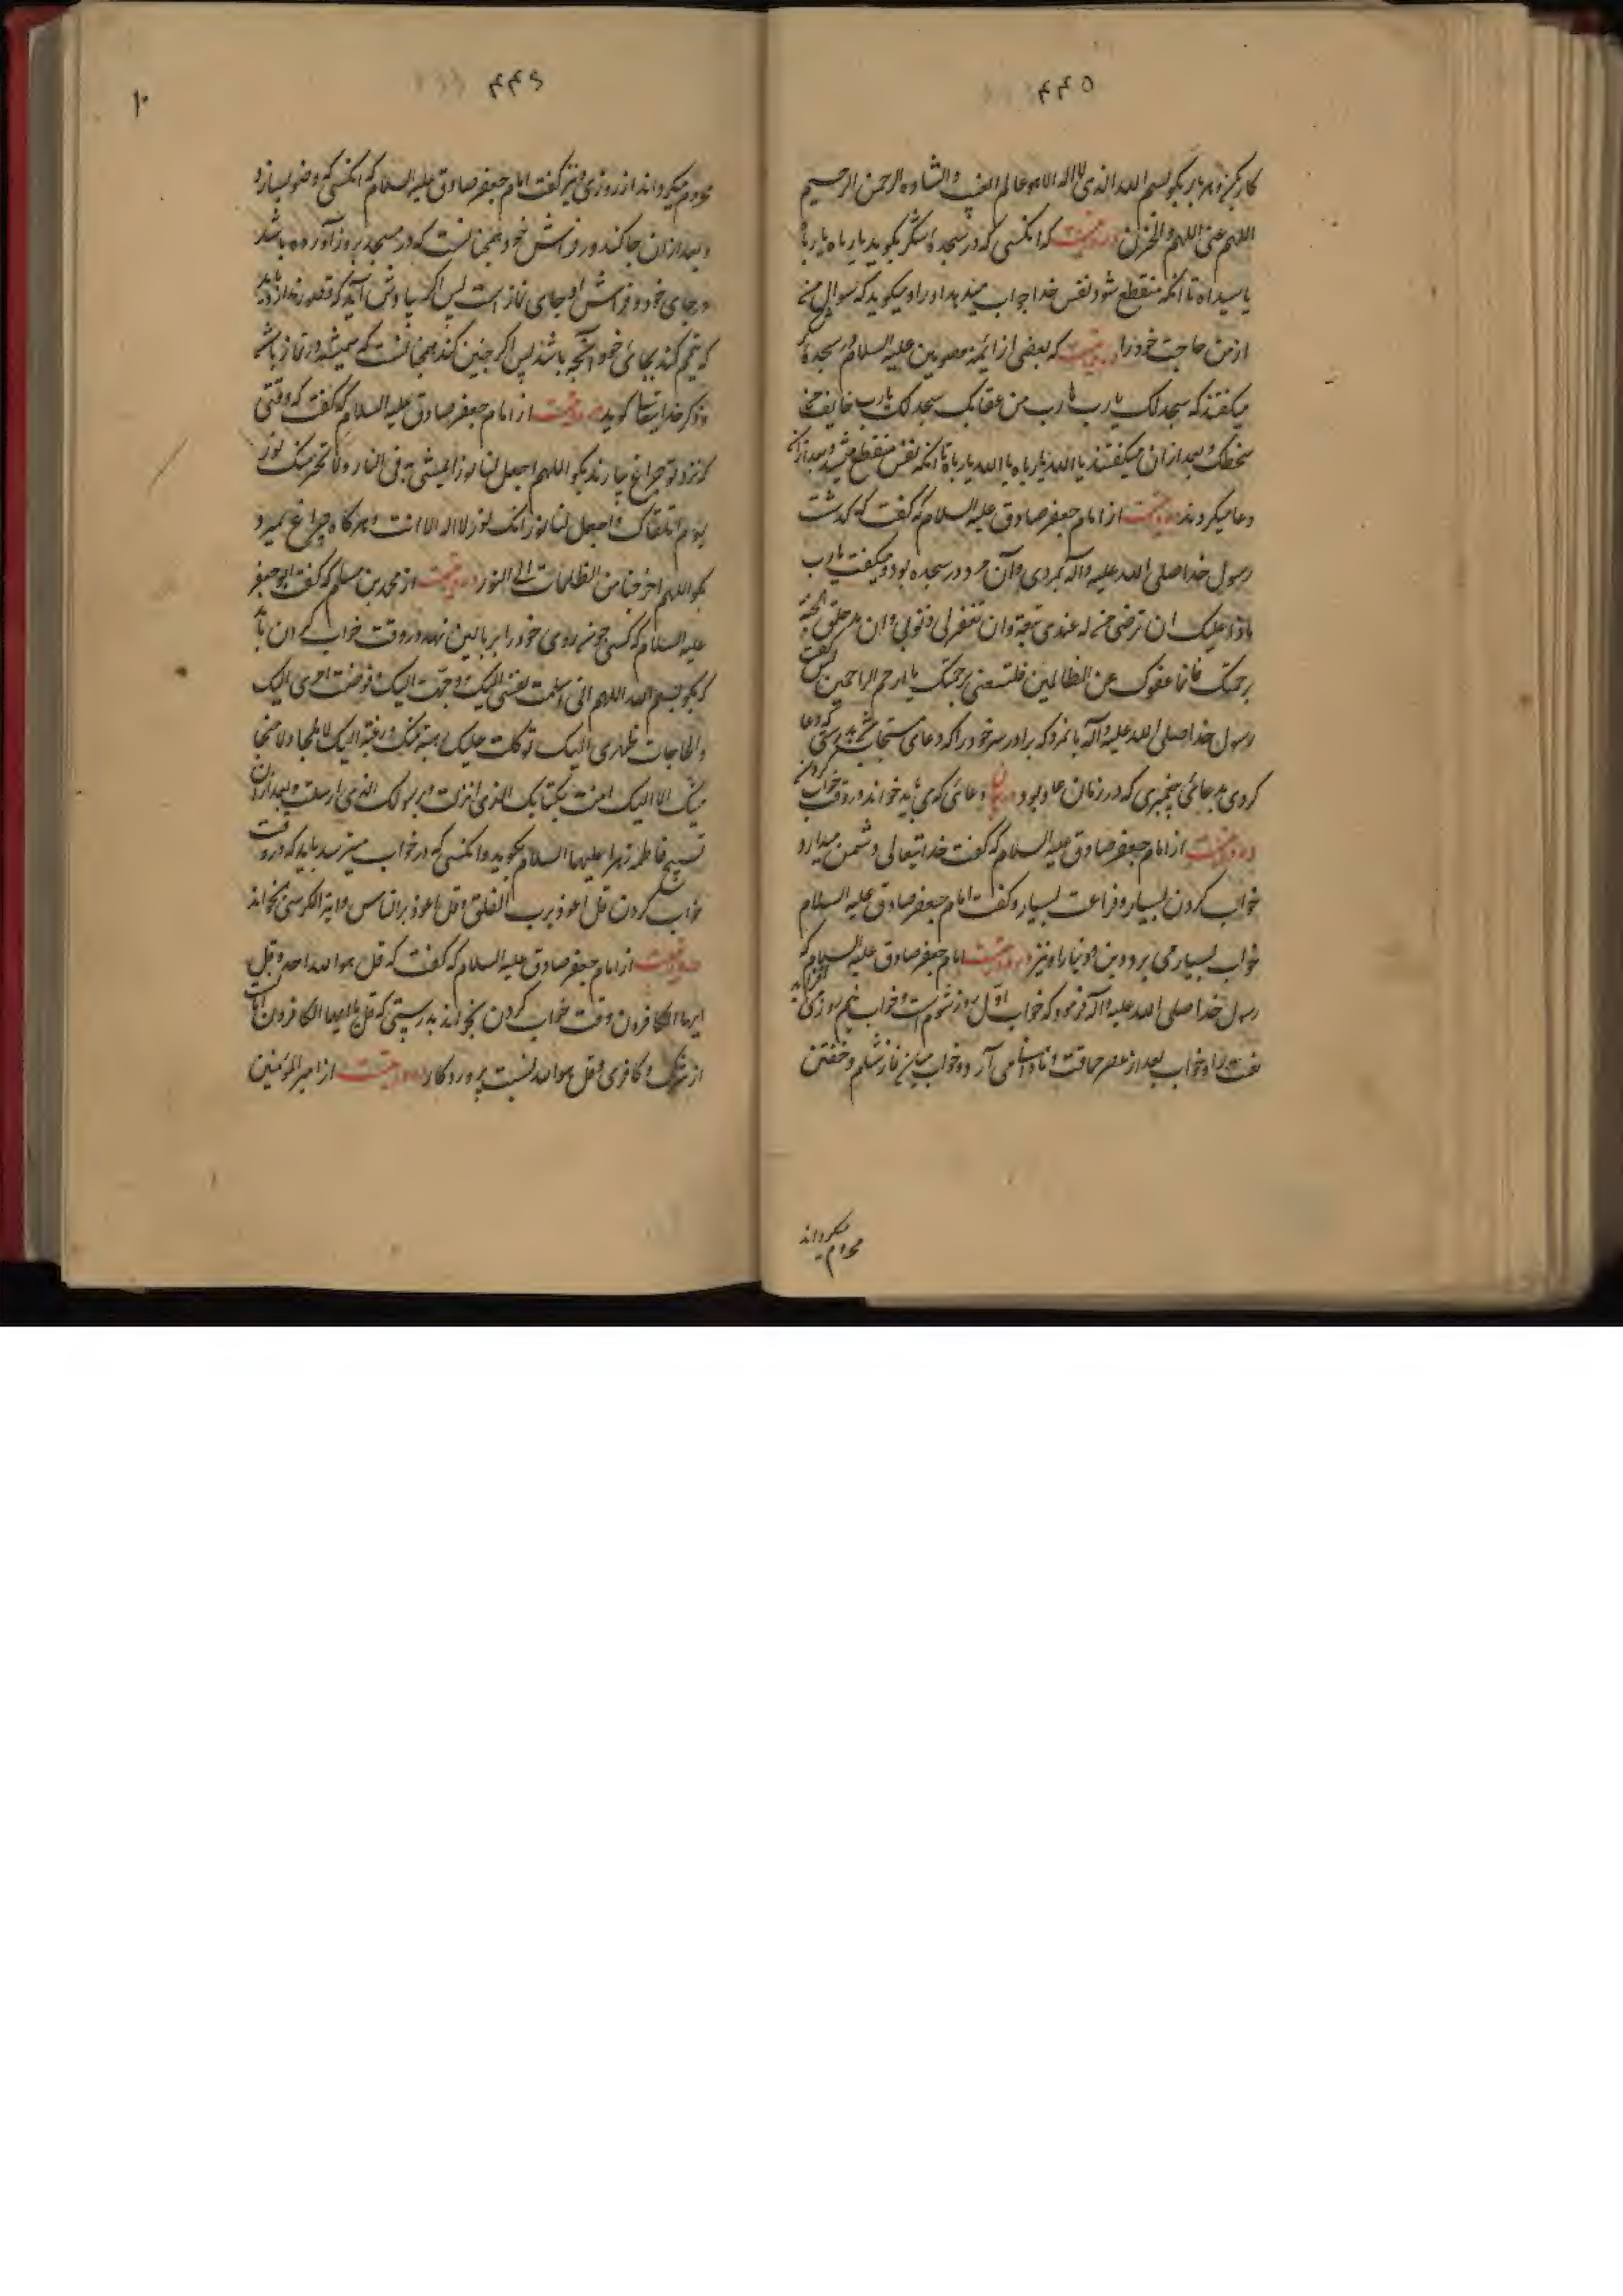 ۴۴۵
کار بکن و هر بار بگو بسم الله الذی لا اله الا هو عالم الغیب والشهاده الرحمن الرحیم
اللهم عنی الهم والحزن در روایتست که انکسی که در سجده شکر بگوید یا رباه یا رباه
یا سیداه تا انکه منقطع شود نفس خدا جواب میدهد او را و میگوید که سوال کن
از من حاجت خود را در روایتست که بعضی از ائمه معصومین علیه السلام در سجده
میگفتند که سجد لک یا رب یا رب من عقابک سجد لک یا رب خایف من
سخطک و بعد از ان میگفتند یا الله یا رباه یا الله یا رباه تا انکه نفس منقطع میشد و بعد از انکه
دعا میکردند در روایتست از امام جعفر صادق علیه السلام که گفت که گذشت
رسول خدا صلی الله علیه واله بمردی و آن مرد در سجده بود و میگفت یا رب
ماذا علیک ان ترضی من له عندی تبعة وان تغفر لی ذنوبی وان تدخلنی الجنة
برحمتک فانما عفوک عن الظالمین فلتسعنی برحمتک یا ارحم الراحمین پس گفت
رسول خدا صلی الله علیه واله بانمرد که بردار سر خود را که دعای مستجاب شد بدرستی که دعا
کردی بدعائی پیغمبری که در زمان عاد بود در بیان دعائی که می باید خواند در وقت خواب کردن
در روایتست از امام جعفر صادق علیه السلام که گفت خدایتعالی دشمن میدارد
خواب کردن بسیار و فراغت بسیار و گفت امام جعفر صادق علیه السلام
خواب بسیار می برد دین و دنیا را و نیز در روایتست امام جعفر صادق علیه السلام که
رسول خدا صلی الله علیه واله فرمود که خواب اول روز شومست و خواب نیم روزی
نعت را و خواب بعد از عصر حماقت و نادانی می آرد و خواب میان نماز شام و خفتن
محروم میکرداند
۴۴۶
۱۰
محروم میکرداند از روزی و نیز گفت امام جعفر صادق علیه السلام که انکسی که وضو بسازد
و بعد از ان جا کند در فراش خود همچنانست که در مسجد بروز آورده باشد
و جای خود و فراش او جای نماز است پس اگر بیادش آید که وضو ندارد باید
که تیمم کند بجائی خود انچه باشد پس اگر چنین کند همچنانست که همیشه در نماز باشد
و ذکر خدایتعالی گوید در روایتست از امام جعفر صادق علیه السلام که گفت که وقتی
که نزد تو چراغ بیارند بگو اللهم اجعل لنا نورا نمشی به فی الناس ولا تحرمنا نورک
یوم نلقاک واجعل لنا نورا انک نور لا اله الا انت و هر کاه چراغ بمیرد
بگو اللهم اخرجنا من الظلمات الی النور در روایتست از محمد بن مسلم که گفت ابو جعفر
علیه السلام که کسی چون روی خود را بر بالین نهد در وقت خواب کردن باید
که بگو بسم الله اللهم انی اسلمت نفسی الیک و وجهت الیک و فوضت امری الیک
والجات ظهری الیک توکلت علیک رهبة منک ورغبة الیک لا ملجا ولا منجا
منک الا الیک امنت بکتابک الذی انزلت وبرسولک الذی ارسلت و بعد از ان
تسبیح فاطمه زهرا علیها السلام بگوید و انکسی که در خواب میترسد باید که در وقت
خواب کردن قل اعوذ برب الفلق و قل اعوذ برب الناس و ایة الکرسی بخواند
در روایتست از امام جعفر صادق علیه السلام که گفت که قل هو الله احد و قل
ایها الکافرون وقت خواب کردن بخواند بدرستی که قل یا ایها الکافرون
از شرک و کافری و قل هو الله نسبت پروردکار در روایتست از امیر المومنین